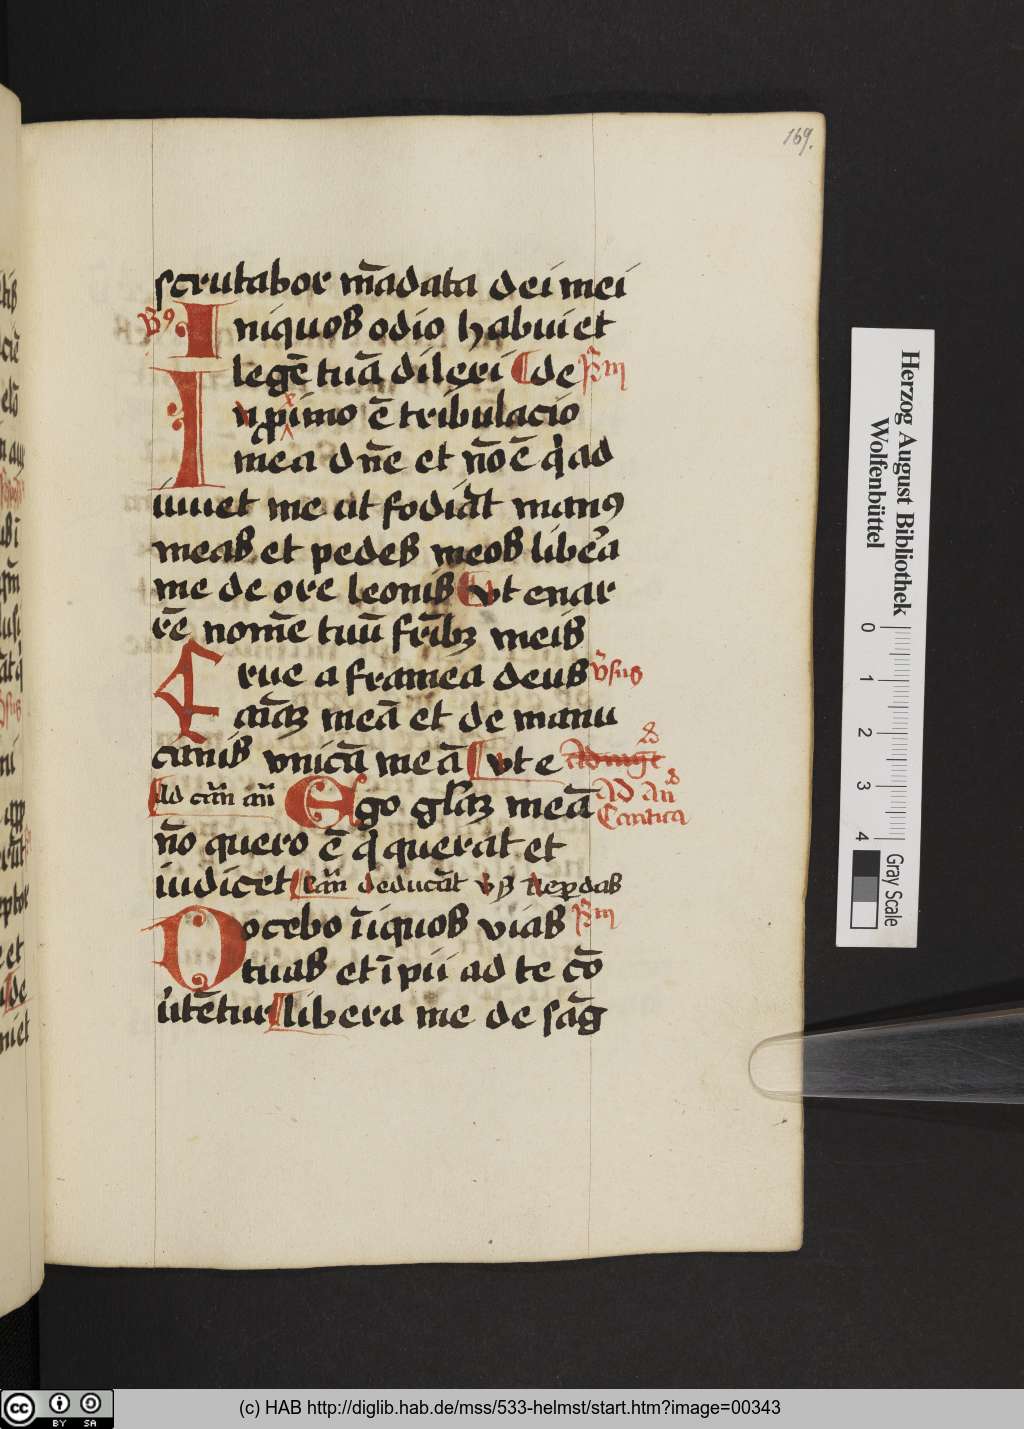 169.
scrutabor mādata dei mei
Iniquos odio habui et
legē tuā dilexi de
In pximo ē tribulacio
mea dn̄e et nō ē qͥ ad
iuuet me at fodiāt manꝰ
meas et pedes meos libeᷓa
me de ore leonis vt enar
rē nomē tuū fr̄ibꝫ meis
Erue a framea deus v̓sus
aīaꝫ meā et de manu
canis vnicā meā vt e
Ad cān an̄ Ego gl̄iaꝫ meā Ad An̄
Cantica
nō quero ē qͥ querat et
iudicet deducāt
Docebo īiquos vias
tuas et īpii ad te cō
u̓tētur libera me de sāg
Herzog August Bibliothek
Wolfenbüttel
0 1 2 3 4
Gray Scale
cc BY SA
(c) HAB http://diglib.hab.de/mss/533-helmst/start.htm?image=00343